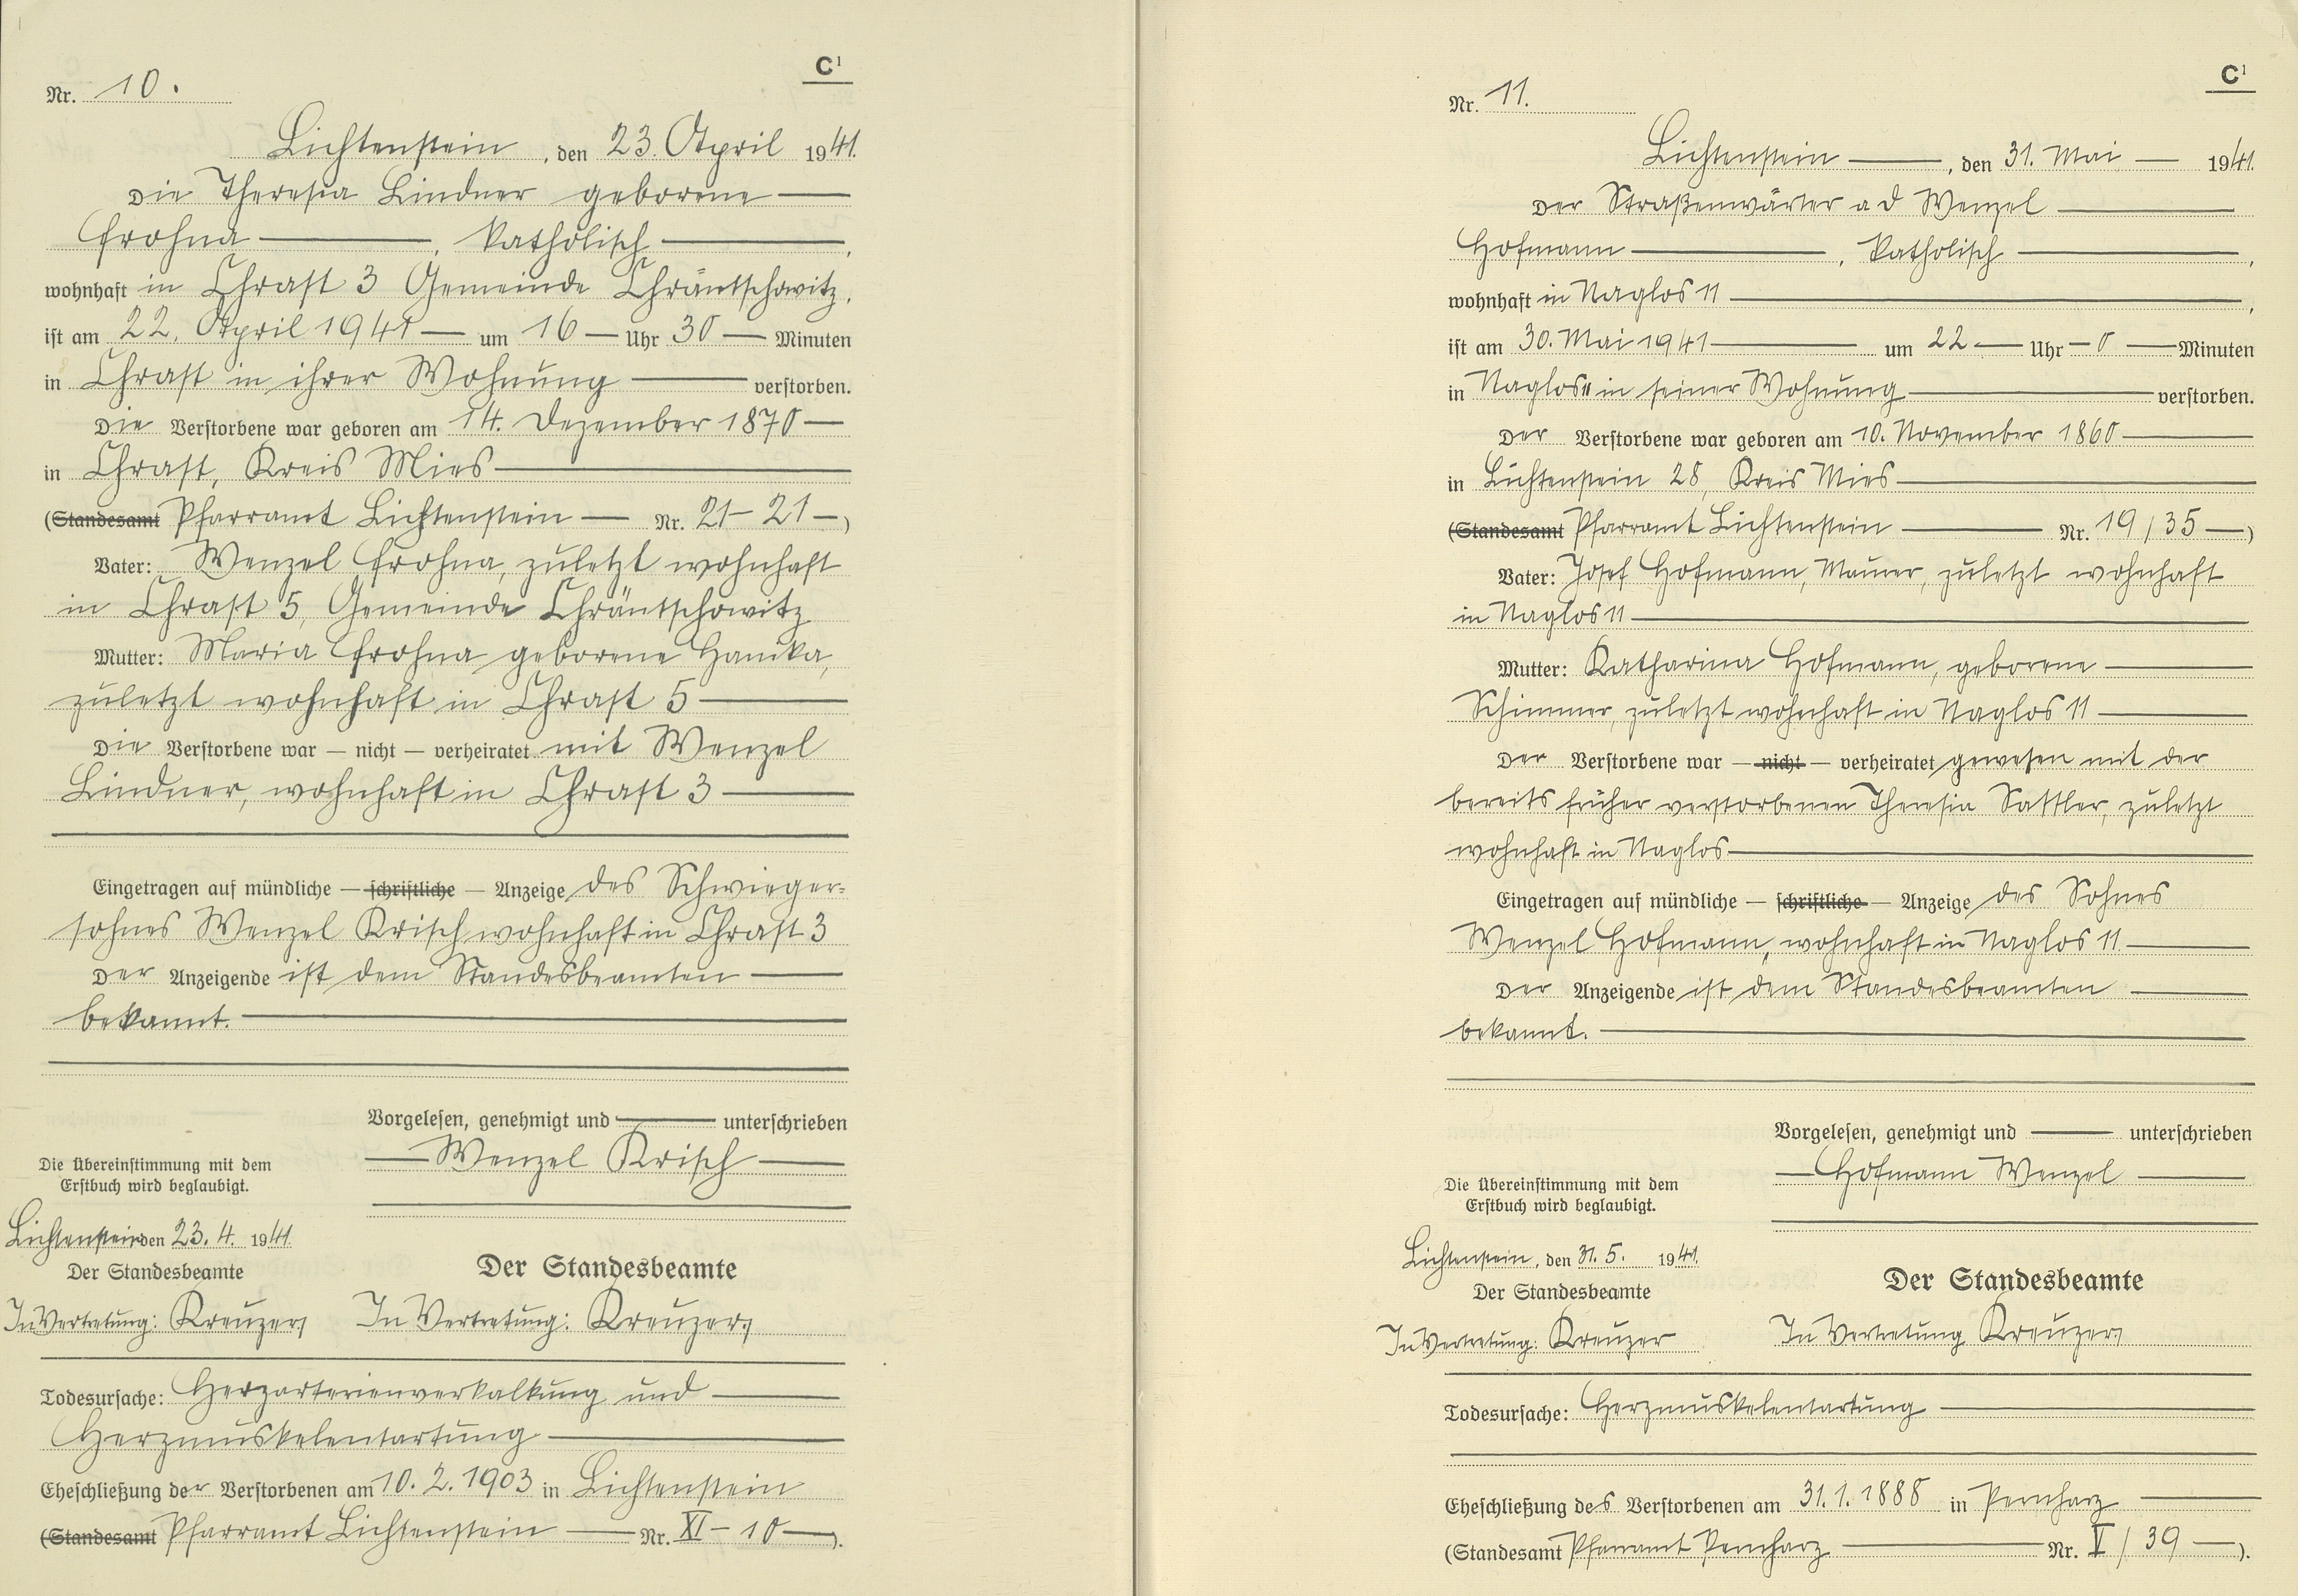 C¹
Nr. 10.
Lichtenstein, den 23. April 1941.
Die Theresia Lindner geborene —
Frohna —, katholisch —,
wohnhaft in Chrast 3 Gemeinde Chräntschowitz,
ist am 22. April 1941 — um 16 — Uhr 30 — Minuten
in Chrast in ihrer Wohnung — verstorben.
Die Verstorbene war geboren am 14. Dezember 1870 —
in Chrast, Kreis Mies —
(Standesamt Pfarramt Lichtenstein — Nr. 21 – 21 —)
Vater: Wenzel Frohna, zuletzt wohnhaft
in Chrast 5, Gemeinde Chräntschowitz
Mutter: Maria Frohna geborene Hanika,
zuletzt wohnhaft in Chrast 5 —
Die Verstorbene war — nicht — verheiratet mit Wenzel
Lindner, wohnhaft in Chrast 3 —
Eingetragen auf mündliche — schriftliche — Anzeige des Schwieger=
sohnes Wenzel Krisch wohnhaft in Chrast 3
Der Anzeigende ist dem Standesbeamten —
bekannt. —
Vorgelesen, genehmigt und — unterschrieben
— Wenzel Krisch —
Die Übereinstimmung mit dem
Erstbuch wird beglaubigt.
Lichtenstein den 23. 4. 1941.
Der Standesbeamte
In Vertretung: Kreuzer
Der Standesbeamte
In Vertretung: Kreuzer
Todesursache: Herzarterienverkalkung und —
Herzmuskelentartung —
Eheschließung der Verstorbenen am 10. 2. 1903 in Lichtenstein
(Standesamt Pfarramt Lichtenstein — Nr. XI – 10 —).
C¹
Nr. 11.
Lichtenstein —, den 31. Mai — 1941.
Der Straßenwärter a d Wenzel —
Hofmann —, katholisch —,
wohnhaft in Naglos 11 —,
ist am 30. Mai 1941 — um 22 — Uhr — 0 — Minuten
in Naglos in seiner Wohnung — verstorben.
Der Verstorbene war geboren am 10. November 1860 —
in Lichtenstein 28, Kreis Mies —
(Standesamt Pfarramt Lichtenstein — Nr. 19 / 35 —)
Vater: Josef Hofmann, Maurer, zuletzt wohnhaft
in Naglos 11 —
Mutter: Katharina Hofmann, geborene —
Schimmer, zuletzt wohnhaft in Naglos 11 —
Der Verstorbene war — nicht — verheiratet gewesen mit der
bereits früher verstorbenen Theresia Sattler, zuletzt
wohnhaft in Naglos —
Eingetragen auf mündliche — schriftliche — Anzeige des Sohnes
Wenzel Hofmann, wohnhaft in Naglos 11 —
Der Anzeigende ist dem Standesbeamten —
bekannt. —
Vorgelesen, genehmigt und — unterschrieben
— Hofmann Wenzel —
Die Übereinstimmung mit dem
Erstbuch wird beglaubigt.
Lichtenstein, den 31. 5. 1941.
Der Standesbeamte
In Vertretung: Kreuzer
Der Standesbeamte
In Vertretung Kreuzer
Todesursache: Herzmuskelentartung —
Eheschließung des Verstorbenen am 31. 1. 1888 in Pernharz —
(Standesamt Pfarramt Pernharz — Nr. V / 39 —).